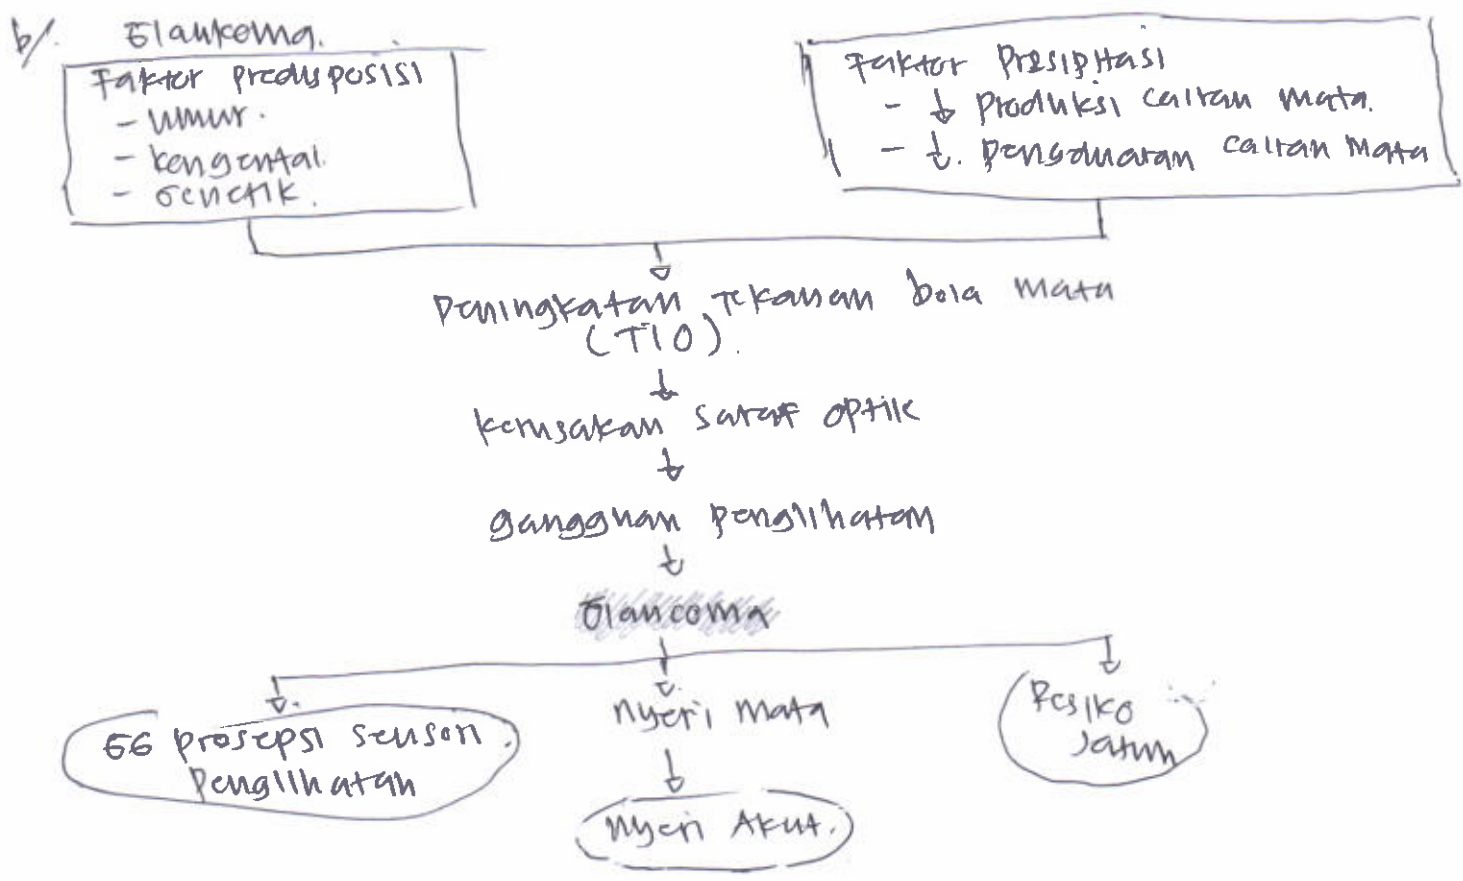 b/. Glaukoma.
Faktor predisposisi
- umur.
- kongental.
- Genetik.
Faktor Presipitasi
- ↓ Produksi cairan mata.
- ↓. Pengeluaran cairan mata
Peningkatan Tekanan bola mata
(TIO).
↓
kerusakan saraf optik
↓
gangguan penglihatan
↓
Glaucoma
GG prosepsi sensori
Penglihatan
nyeri mata
Resiko
Jatuh
nyeri Akut.